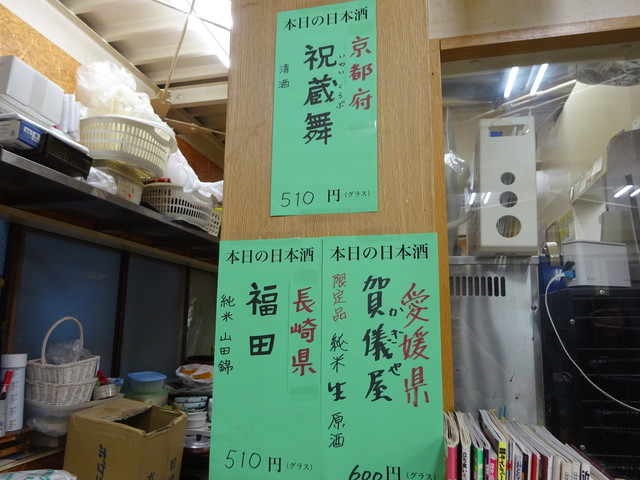 本日の日本酒
京都府
いわいくらぶ
祝蔵舞
清酒
510円(グラス)
本日の日本酒
愛媛県
かぎや
賀儀屋
限定品 純米生原酒
600円(グラス)
本日の日本酒
長崎県
福田
純米 山田錦
510円(グラス)